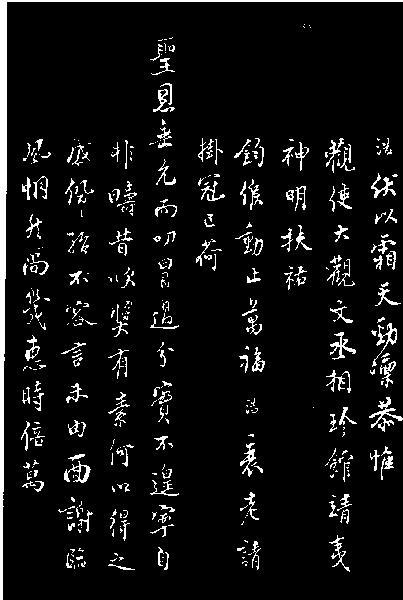 浩伏以霜天勁凜恭惟
觀使大觀文丞相珍館靖夷
神明扶祐
鈞候動止萬福浩衰老請
掛冠已荷
聖恩垂允而叨冒過分實不遑寧自
非疇昔吹獎有素何以得之
感佩殆不容言未由面謝臨
風惘然尚幾惠時倍萬